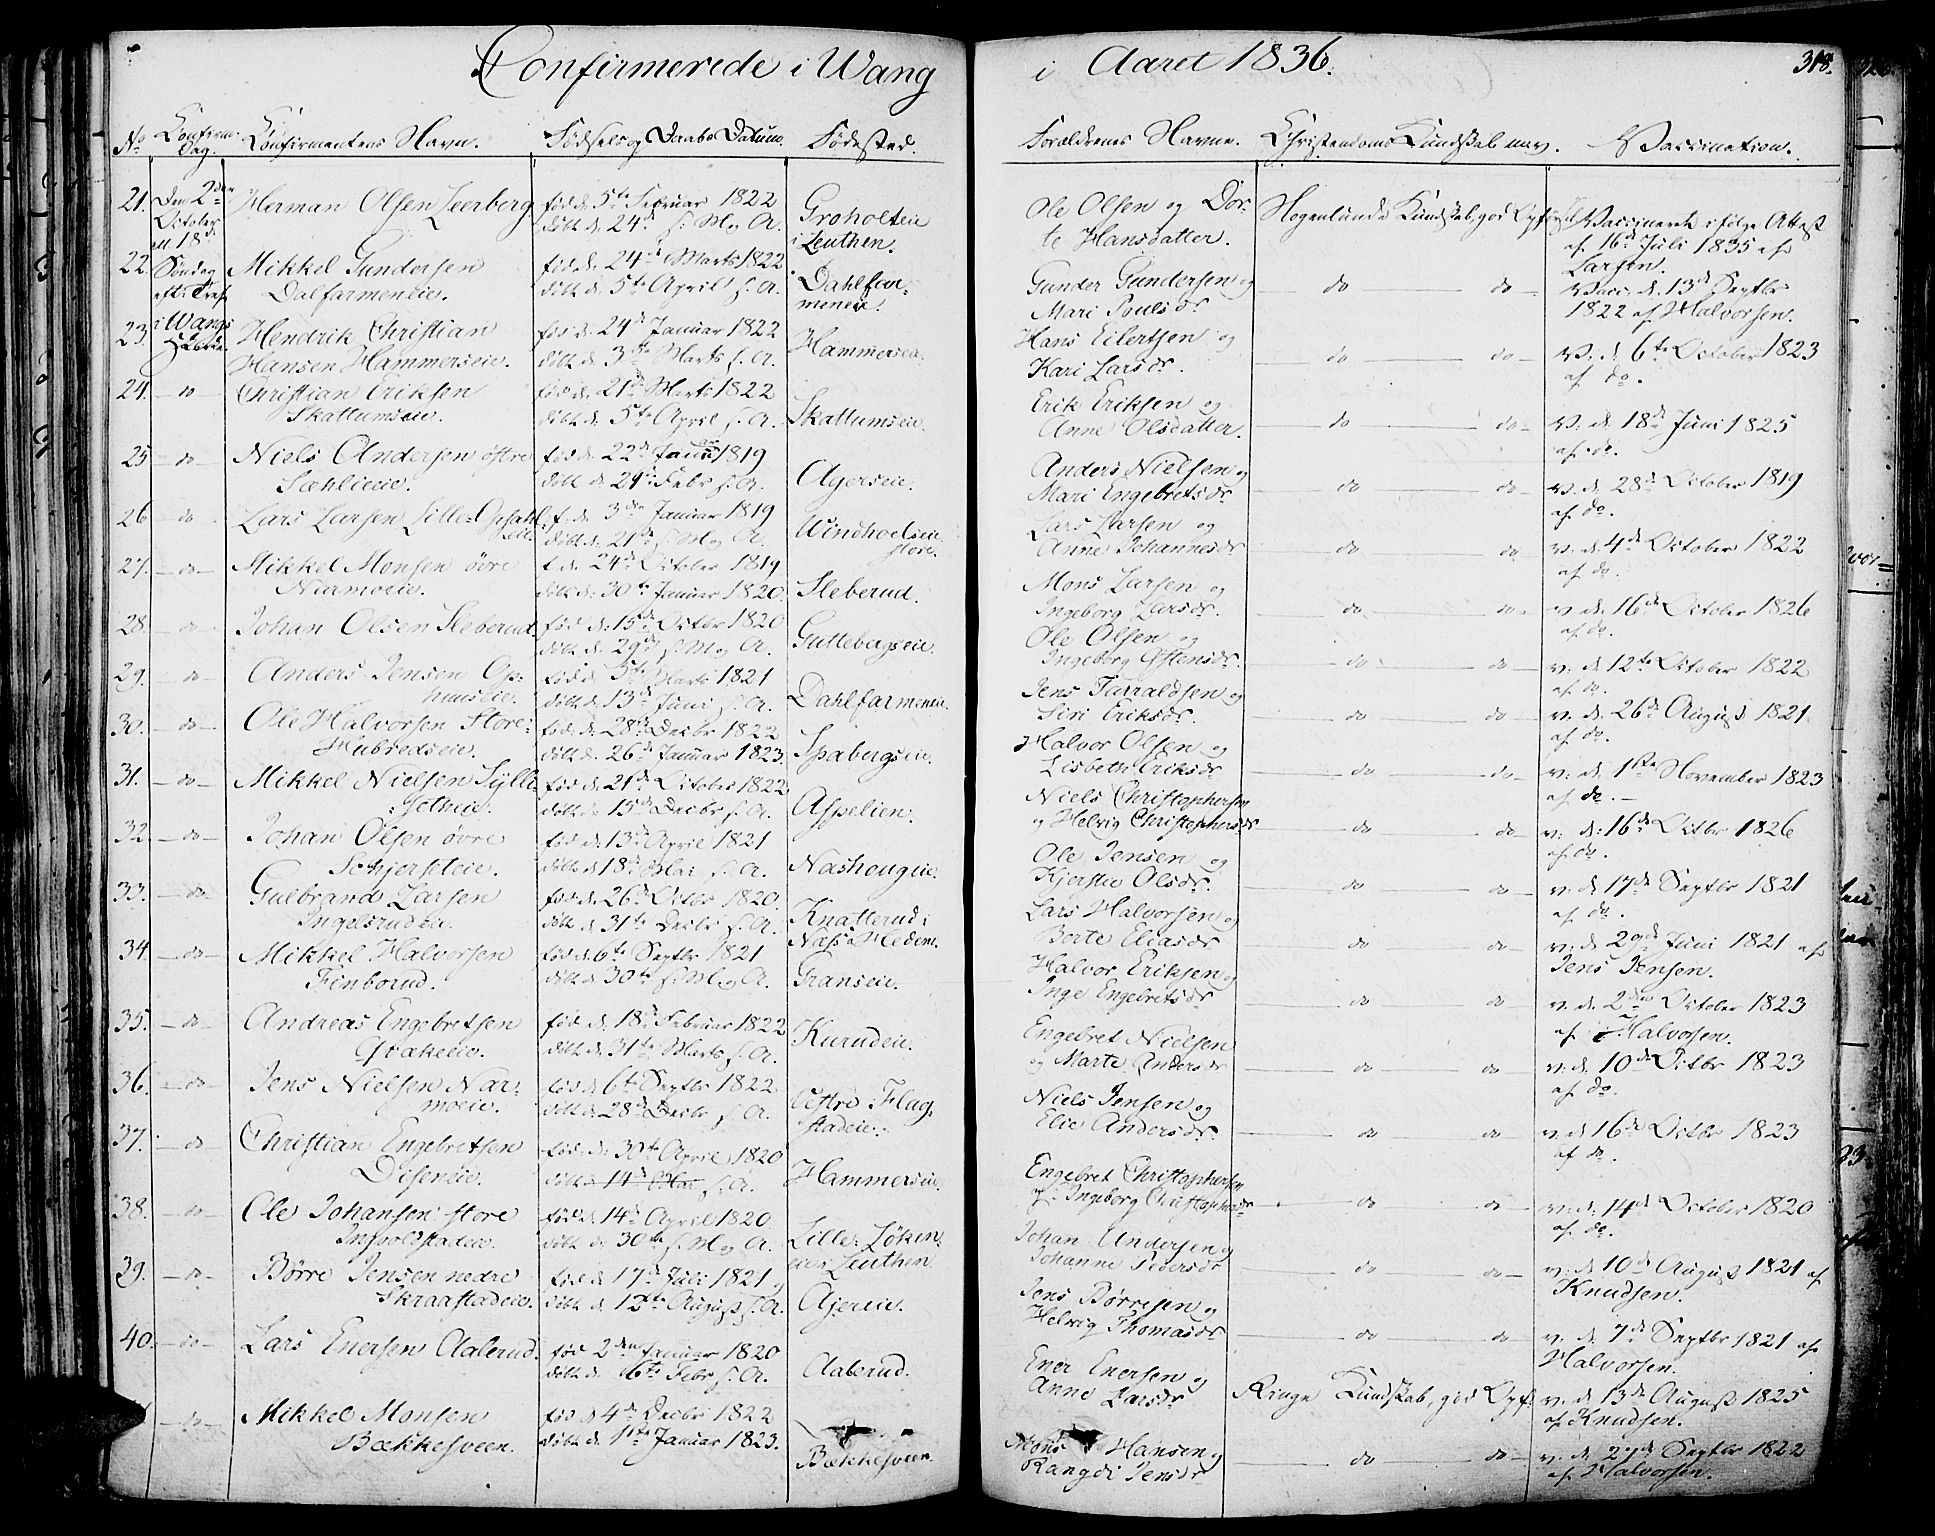 Confirmerede i Wang i Aaret 1836.
318.
No Confirm: Dag. Confirmentens Navn. Fødsels og Daabs Datum. Fødested. Forældrenes Navne. Christendoms Kundskab m.v. Vaccination.
21. Den 2den October Herman Olsen Leerberg
fød d. 5te Februar 1822
døbt d. 24de s. M. og A.
Groholteie
i Leuthen.
Ole Olsen og Dor-
te Hansdatter.
Nogenlunde Kundskab, god Opførsel
Vaccineret ifølge Attest
af 16de Juli 1835 af
Larsen.
22. Søndag eft: Tref: Mikkel Gundersen
Dalfarmeneie.
fød d. 24de Marts 1822
døbt d. 5te April s. A.
Dahlfar-
meneie.
Gunder Gundersen og
Mari Poulsdr
do do
Vacc. d. 13de Septbr
1822 af Halvorsen.
23. i Wangs Kirke. Hendrik Christian
Hansen Hammerseie.
fød d. 24de Januar 1822
døbt d. 3die Marts s. A.
Hammerseie.
Hans Eilertsen og
Kari Larsdr.
do do
V. d. 6te October 1823
af do.
24. do Christian Eriksen
Skattumseie.
fød d. 21de Marts 1822
døbt d. 5te April s. A.
Skattumseie.
Erik Eriksen og
Anne Olsdatter.
do do
V. d. 18de Juni 1825
af do.
25 do Niels Andersen østre
Sæhlieeie.
fød d. 22de Januar 1819
døbt d. 24de Febr s. A.
Agerseie.
Anders Nielsen og
Mari Engebretsdr
do do
V. d. 28de October 1819
af do.
26 do Lars Larsen Lille-Opsahl-
eie.
f. d. 3die Januar 1819
døbt d. 21de s. M. og A.
Windholseie
store.
Lars Larsen og
Anne Johannesdr
do do
v. d. 4de October 1822
af do.
27. do Mikkel Monsen øvre
Narmoeie.
f. d. 24de October 1819
døbt d. 30te Januar 1820.
Sleberud.
Mons Larsen og
Ingeborg Larsdr.
do do
v. d. 16de October 1826
af do.
28. do Johan Olsen Sleberud
fød d. 15de Octbr 1820
døbt d. 29de s. M. og A.
Guttebergseie.
Ole Olsen og
Ingeborg Østensdr.
do do
v. d. 12te October 1822
af do.
29. do Anders Jensen Op-
huuseie.
fød d. 5te Marts 1821
døbt d. 13de Juni s. A.
Dahlfarmeneie.
Jens Tarraldsen og
Siri Eriksdr.
do do
v. d. 26de August 1821
af do.
30. do Ole Halvorsen Store-
Hubredseie.
fød d. 28de Decbr 1822
døbt d. 26de Januar 1823.
Spabergseie.
Halvor Olsen og
Lisbeth Eriksdr
do do
v. d. 1ste November 1823
af do.
31. do Mikkel Nielsen Sylli-
setheie.
fød d. 21de October 1822
døbt d. 15de Decbr s. A.
Asselien.
Niels Christophersen
og Helvig Christophersdr
do do
v. d. 16de Octbr 1826
af do.
32. do Johan Olsen øvre
Schjerseteie.
fød d. 13de April 1821
døbt d. 18de Mai s. A.
Nashougeie.
Ole Jensen og
Kjersti Olsdr.
do do
v. d. 17de Septbr 1821
af do.
33. do Gulbrand Larsen
Ingelsrudeie.
fød d. 26de Octbr 1820.
døbt d. 31te Decbr s. A.
Knatterud i
Næss a Hedem:
Lars Halvorsen og
Berte Eliasdr
do do
v. d. 29de Juni 1821 af
Jens Jensen.
34. do Mikkel Halvorsen
Finborud.
fød d. 6te Septbr 1821
døbt d. 30te s. M. og A.
Granseie.
Halvor Eriksen og
Inge Engebretsdr
do do
v. d. 2den October 1823
af Halvorsen.
35. do Andreas Engebretsen
Qvækeeie.
fød d. 18de Februar 1822
døbt d. 31te Marts s. A.
Kurudeie.
Engebret Nielsen
og Marte Andersdr
do do
v. d. 10de Octbr 1823
af do.
36. do Jens Nielsen Nar-
moeie.
fød d. 6te Septbr 1822
døbt d. 28de Decbr s. A.
Østre Flag-
stadeie.
Niels Jensen og
Elie Andersdr.
do do
v. d. 16de Octbr 1823
af do.
37. do Christian Engebretsen
Diseneie.
fød d. 30te April 1820
døbt d. 14de Mai s. A.
Hammerseie.
Engebret Christophersen
og Ingeborg Christophersdr
do do
v. d. 14de October 1820
af do.
38. do Ole Johansen store
Ingvoldstadeie.
fød d. 14de April 1820
døbt d. 30te s. M. og A.
Lille-Løken-
eie i Leuthen
Johan Andersen og
Johanne Pedersdr
do do
v. d. 10de August 1821 af
Knudsen.
39. do Børre Jensen nedre
Skraastadeie.
fød d. 17de Juli 1821 og
døbt d. 12te August s. A.
Ajereie.
Jens Børresen og
Helvig Thomasdr
do do
v. d. 7de Septbr 1821 af
Halvorsen.
40. do Lars Enersen Aalerud.
fød 2den Januar 1820
døbt d. 16te Febr s. A.
Aalerud.
Ener Enersen og
Anne Larsdr
Ringe Kundskab, god Opf:
v. d. 13de August 1825
af Knudsen.
do Mikkel Monsen
Bækkesveen.
fød d. 4de Decbr 1822
døbt d. 1ste Januar 1823.
Bækkesveen.
Mons Hansen og
Rangdi Jensdr
do do
v. d. 27de Septbr 1822
af Halvorsen.